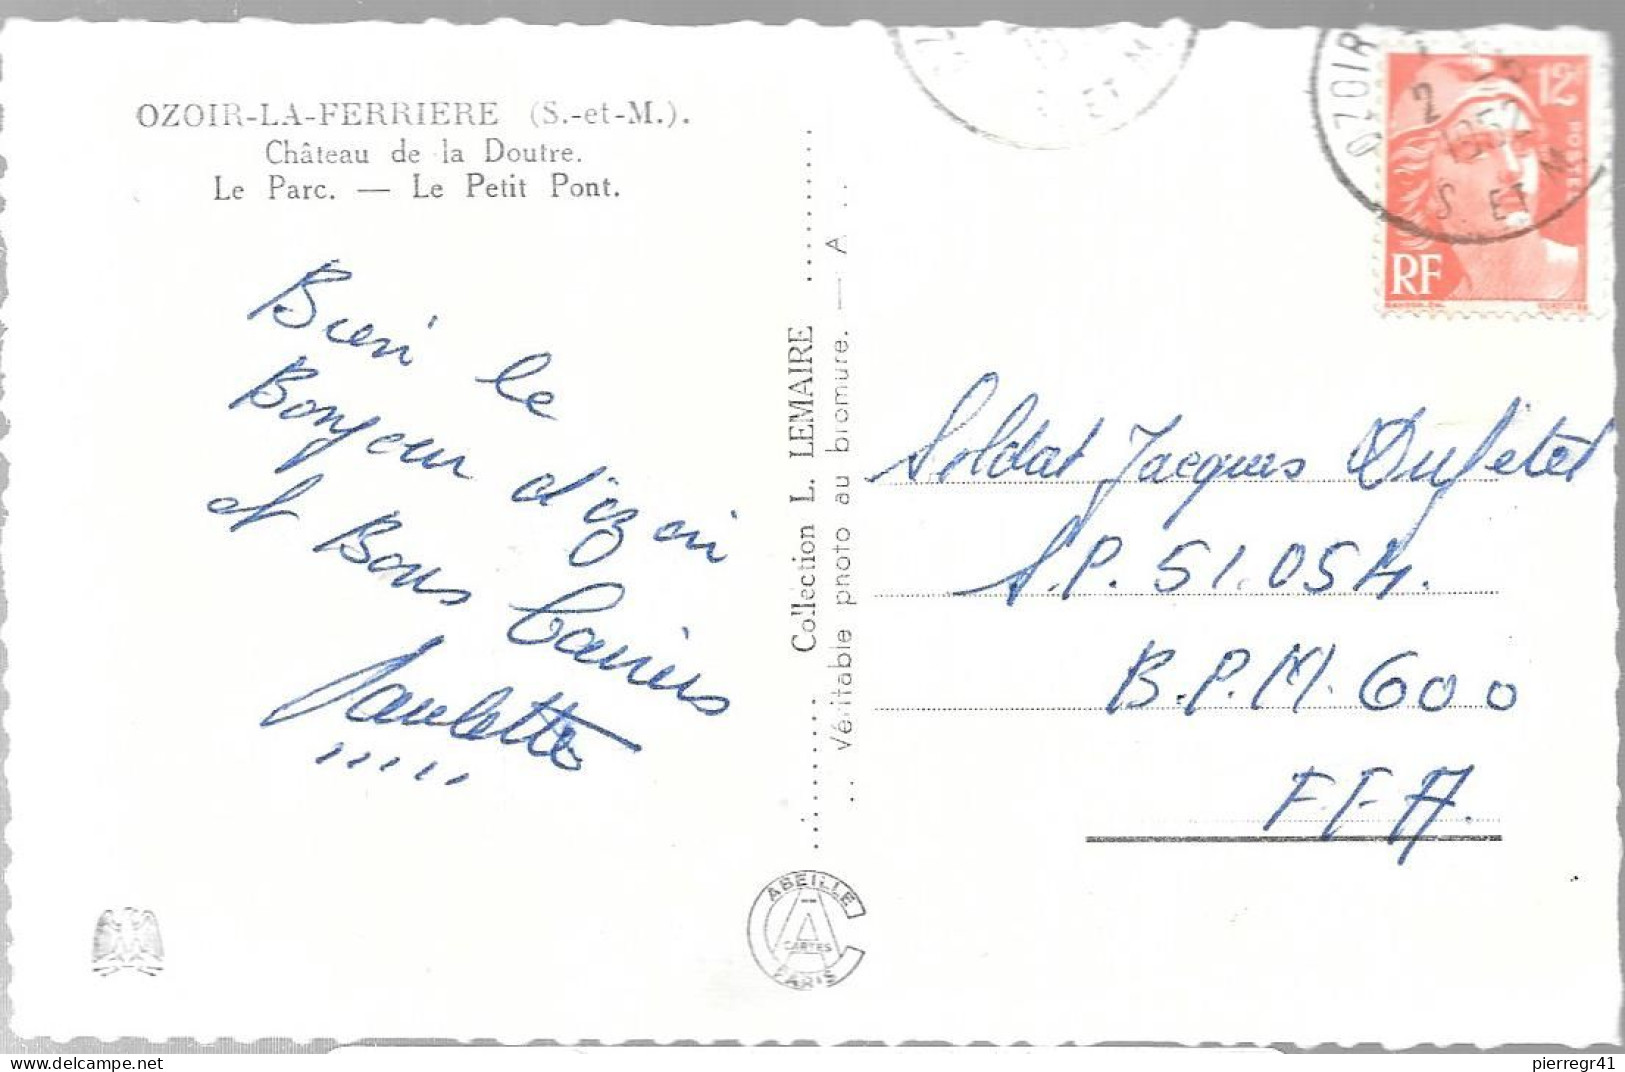 OZOIR-LA-FERRIERE (S.-et-M.).
Château de la Doutre.
Le Parc. — Le Petit Pont.
Bien le
Bonjour d'Ozoir
et Bons Baisers
Paulette
Collection L. LEMAIRE
Véritable photo au bromure. — A
ABEILLE
CARTES
PARIS
ET M
OZOIR
2
1952
S. ET M
12F
POSTES
RF
Soldat Jacques Dufétel
S.P. 51.054.
B.P.M. 600
F.F.A.
pierregr41